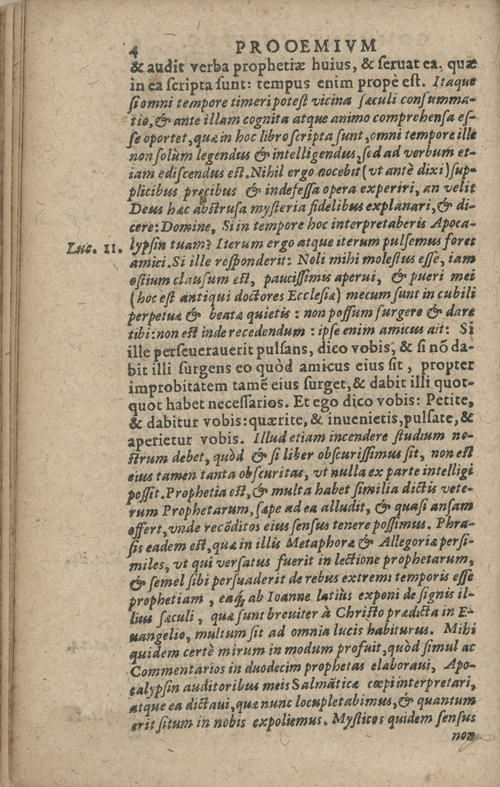 4 PROOEMIVM
& audit verba prophetiæ huius, & seruat ea, quæ
in ea scripta sunt: tempus enim propè est. Itaque
si omni tempore timeri potest vicina sæculi consumma-
tio, & ante illam cognita atque animo comprehensa es-
se oportet, quæ in hoc libro scripta sunt, omni tempore ille
non solùm legendus & intelligendus, sed ad verbum et-
iam ediscendus est. Nihil ergo nocebit (vt antè dixi) sup-
plicibus pręcibus & indefessa opera experiri, an velit
Deus hæc abstrusa mysteria fidelibus explanari, & di-
cere: Domine, Si in tempore hoc interpretaberis Apoca-
Luc. 11. lypsin tuam? Iterum ergo atque iterum pulsemus fores
amici. Si ille responderit: Noli mihi molestus esse, iam
ostium clausum est, paucissimis aperui, & pueri mei
(hoc est antiqui doctores Ecclesiæ) mecum sunt in cubili
perpetuæ & beatæ quietis: non possum surgere & dare
tibi: non est inde recedendum: ipse enim amicus ait: Si
ille perseuerauerit pulsans, dico vobis, & si nō da-
bit illi surgens eo quòd amicus eius sit, propter
improbitatem tamē eius surget, & dabit illi quot-
quot habet necessarios. Et ego dico vobis: Petite,
& dabitur vobis: quærite, & inuenietis, pulsate, &
aperietur vobis. Illud etiam incendere studium no-
strum debet, quòd & si liber obscurissimus sit, non est
eius tamen tanta obscuritas, vt nulla ex parte intelligi
possit. Prophetia est, & multa habet similia dictis vete-
rum Prophetarum, sæpe ad ea alludit, & quasi ansam
offert, vnde recōditos eius sensus tenere possimus. Phra-
sis eadem est, quæ in illis Metaphoræ & Allegoriæ persi-
miles, vt qui versatus fuerit in lectione prophetarum,
& semel sibi persuaderit de rebus extremi temporis esse
prophetiam, eaq́; ab Ioanne latiùs exponi de signis il-
lius sæculi, quæ sunt breuiter à Christo prædicta in E-
uangelio, multum sit ad omnia lucis habiturus. Mihi
quidem certè mirum in modum profuit, quòd simul ac
Commentarios in duodecim prophetas elaboraui, Apo-
calypsin auditoribus meis Salmāticæ cœpi interpretari,
atque ea dictaui, quæ nunc locupletabimus, & quantum
erit situm in nobis expoliemus. Mysticos quidem sensus
non